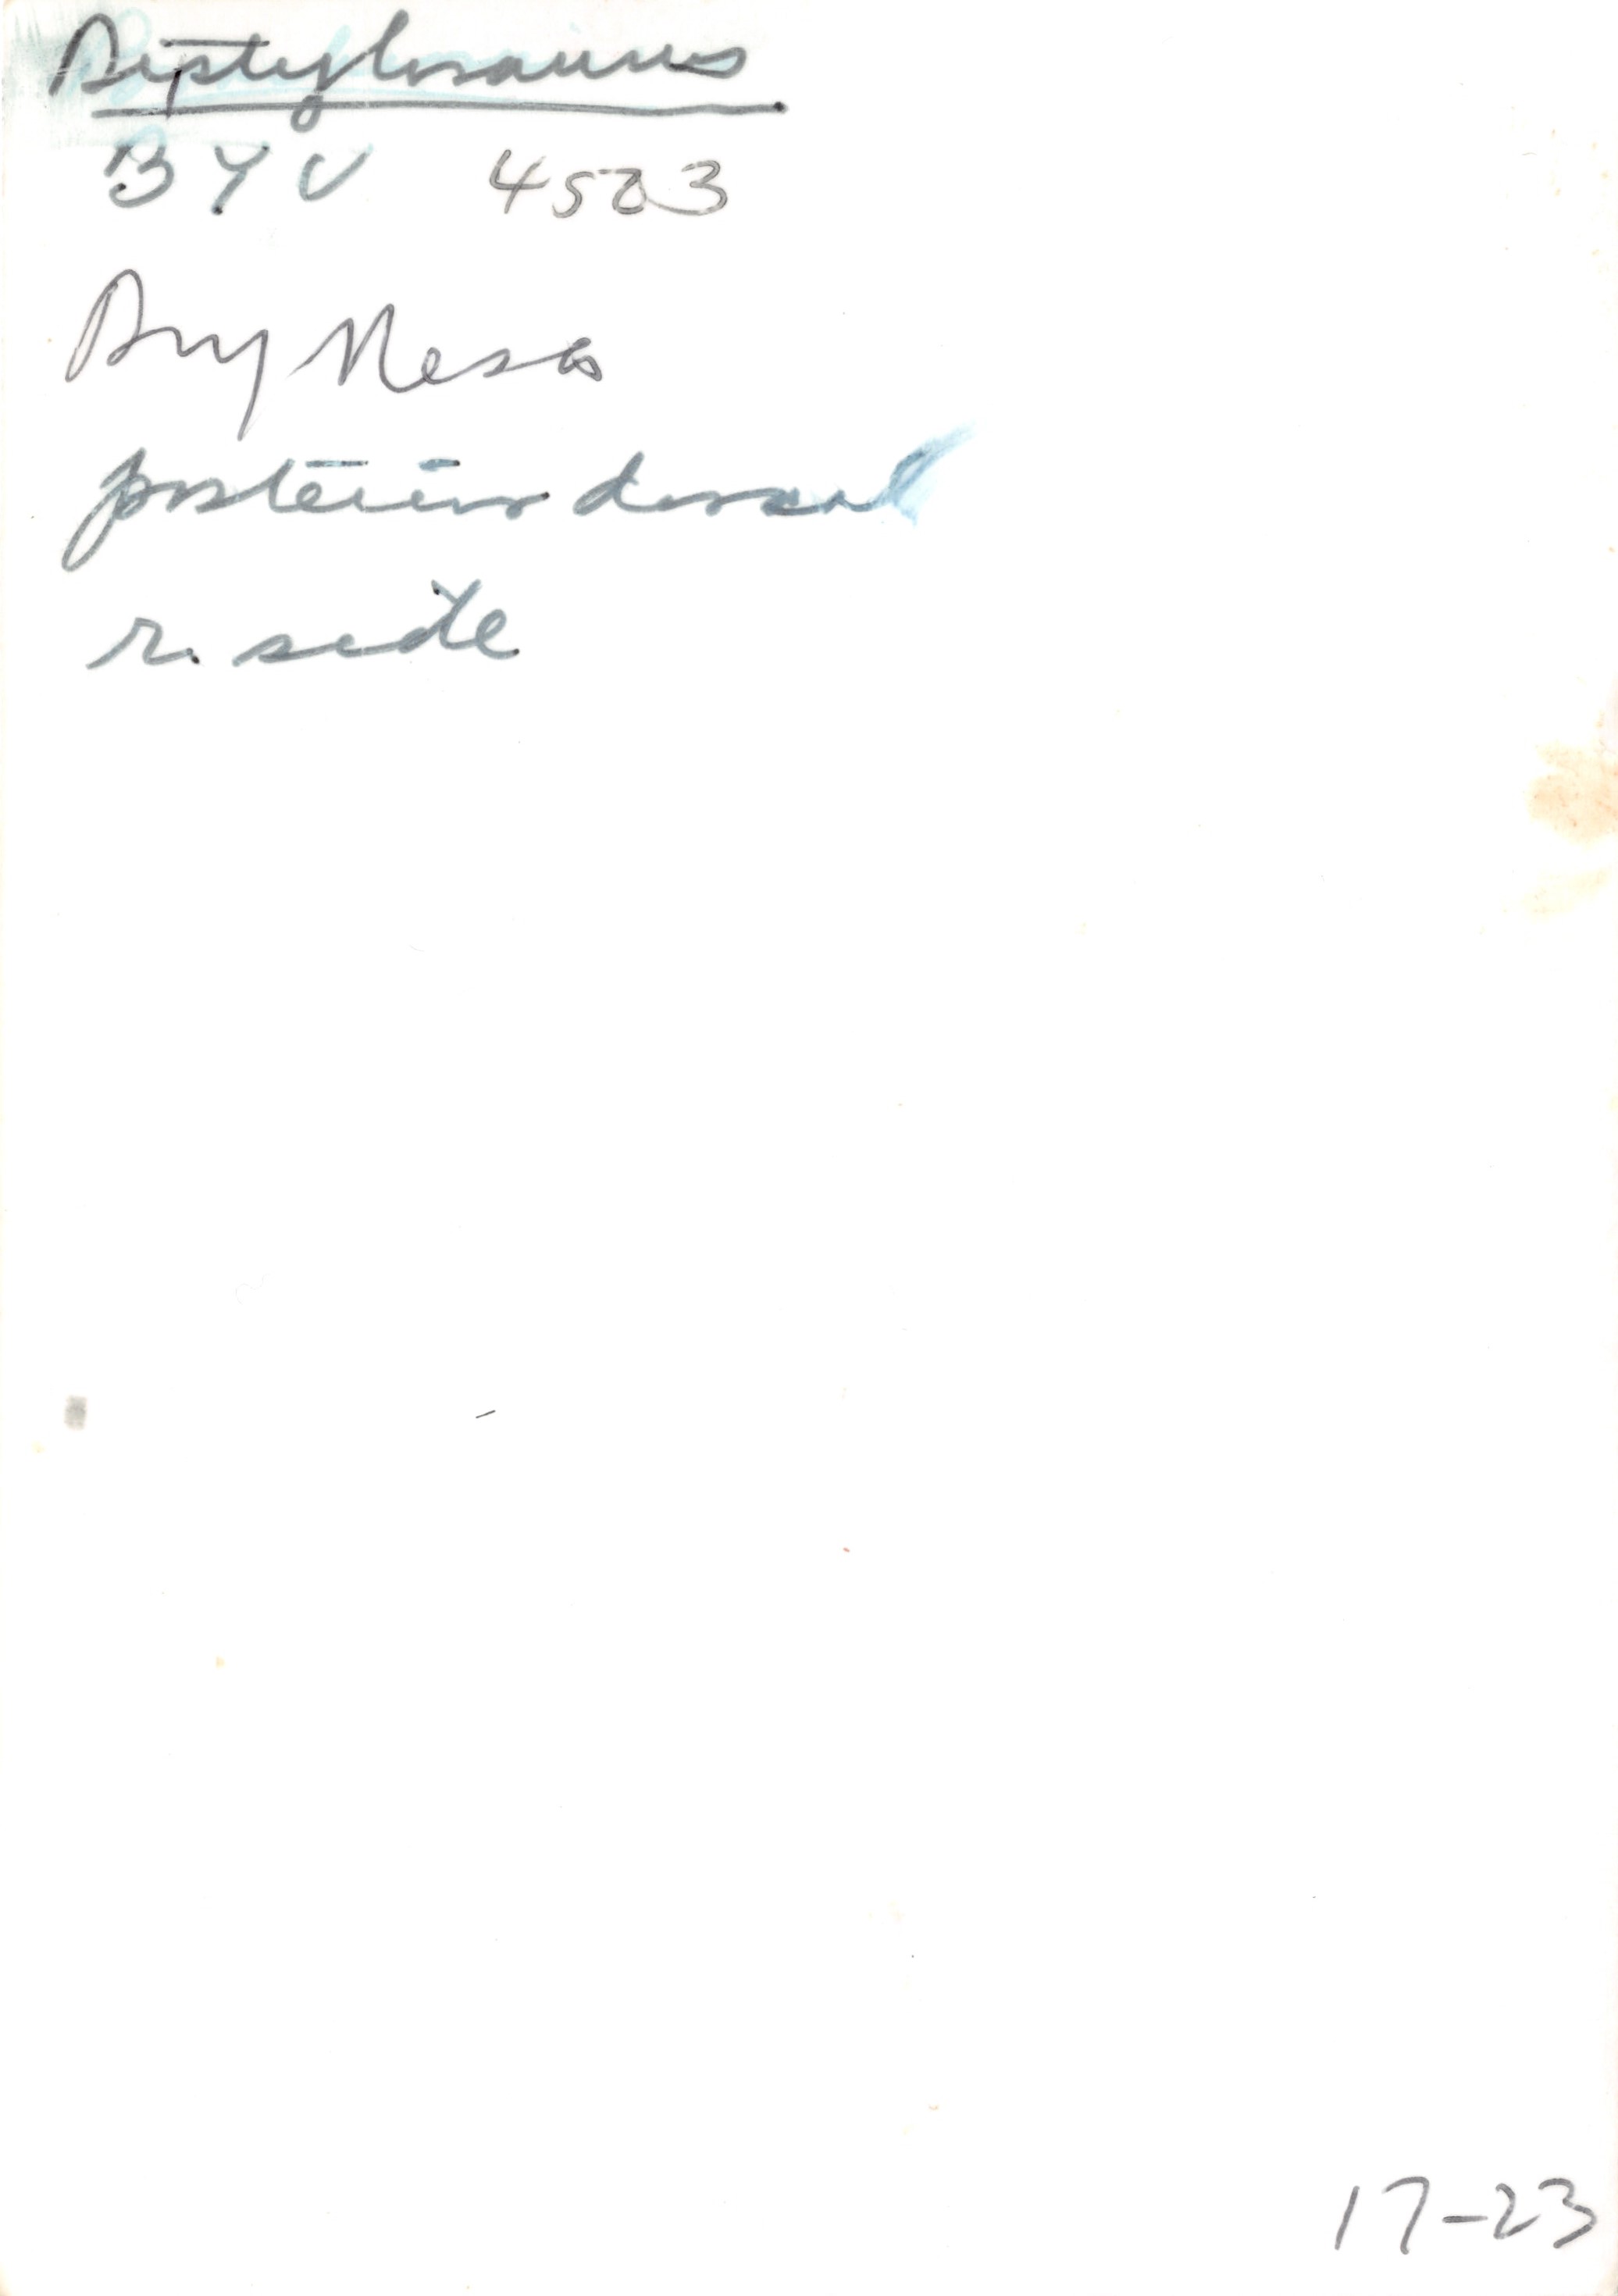 Dystylosaurus
BYU 4503
Dry Mesa
posterior dorsal
r. side
17-23